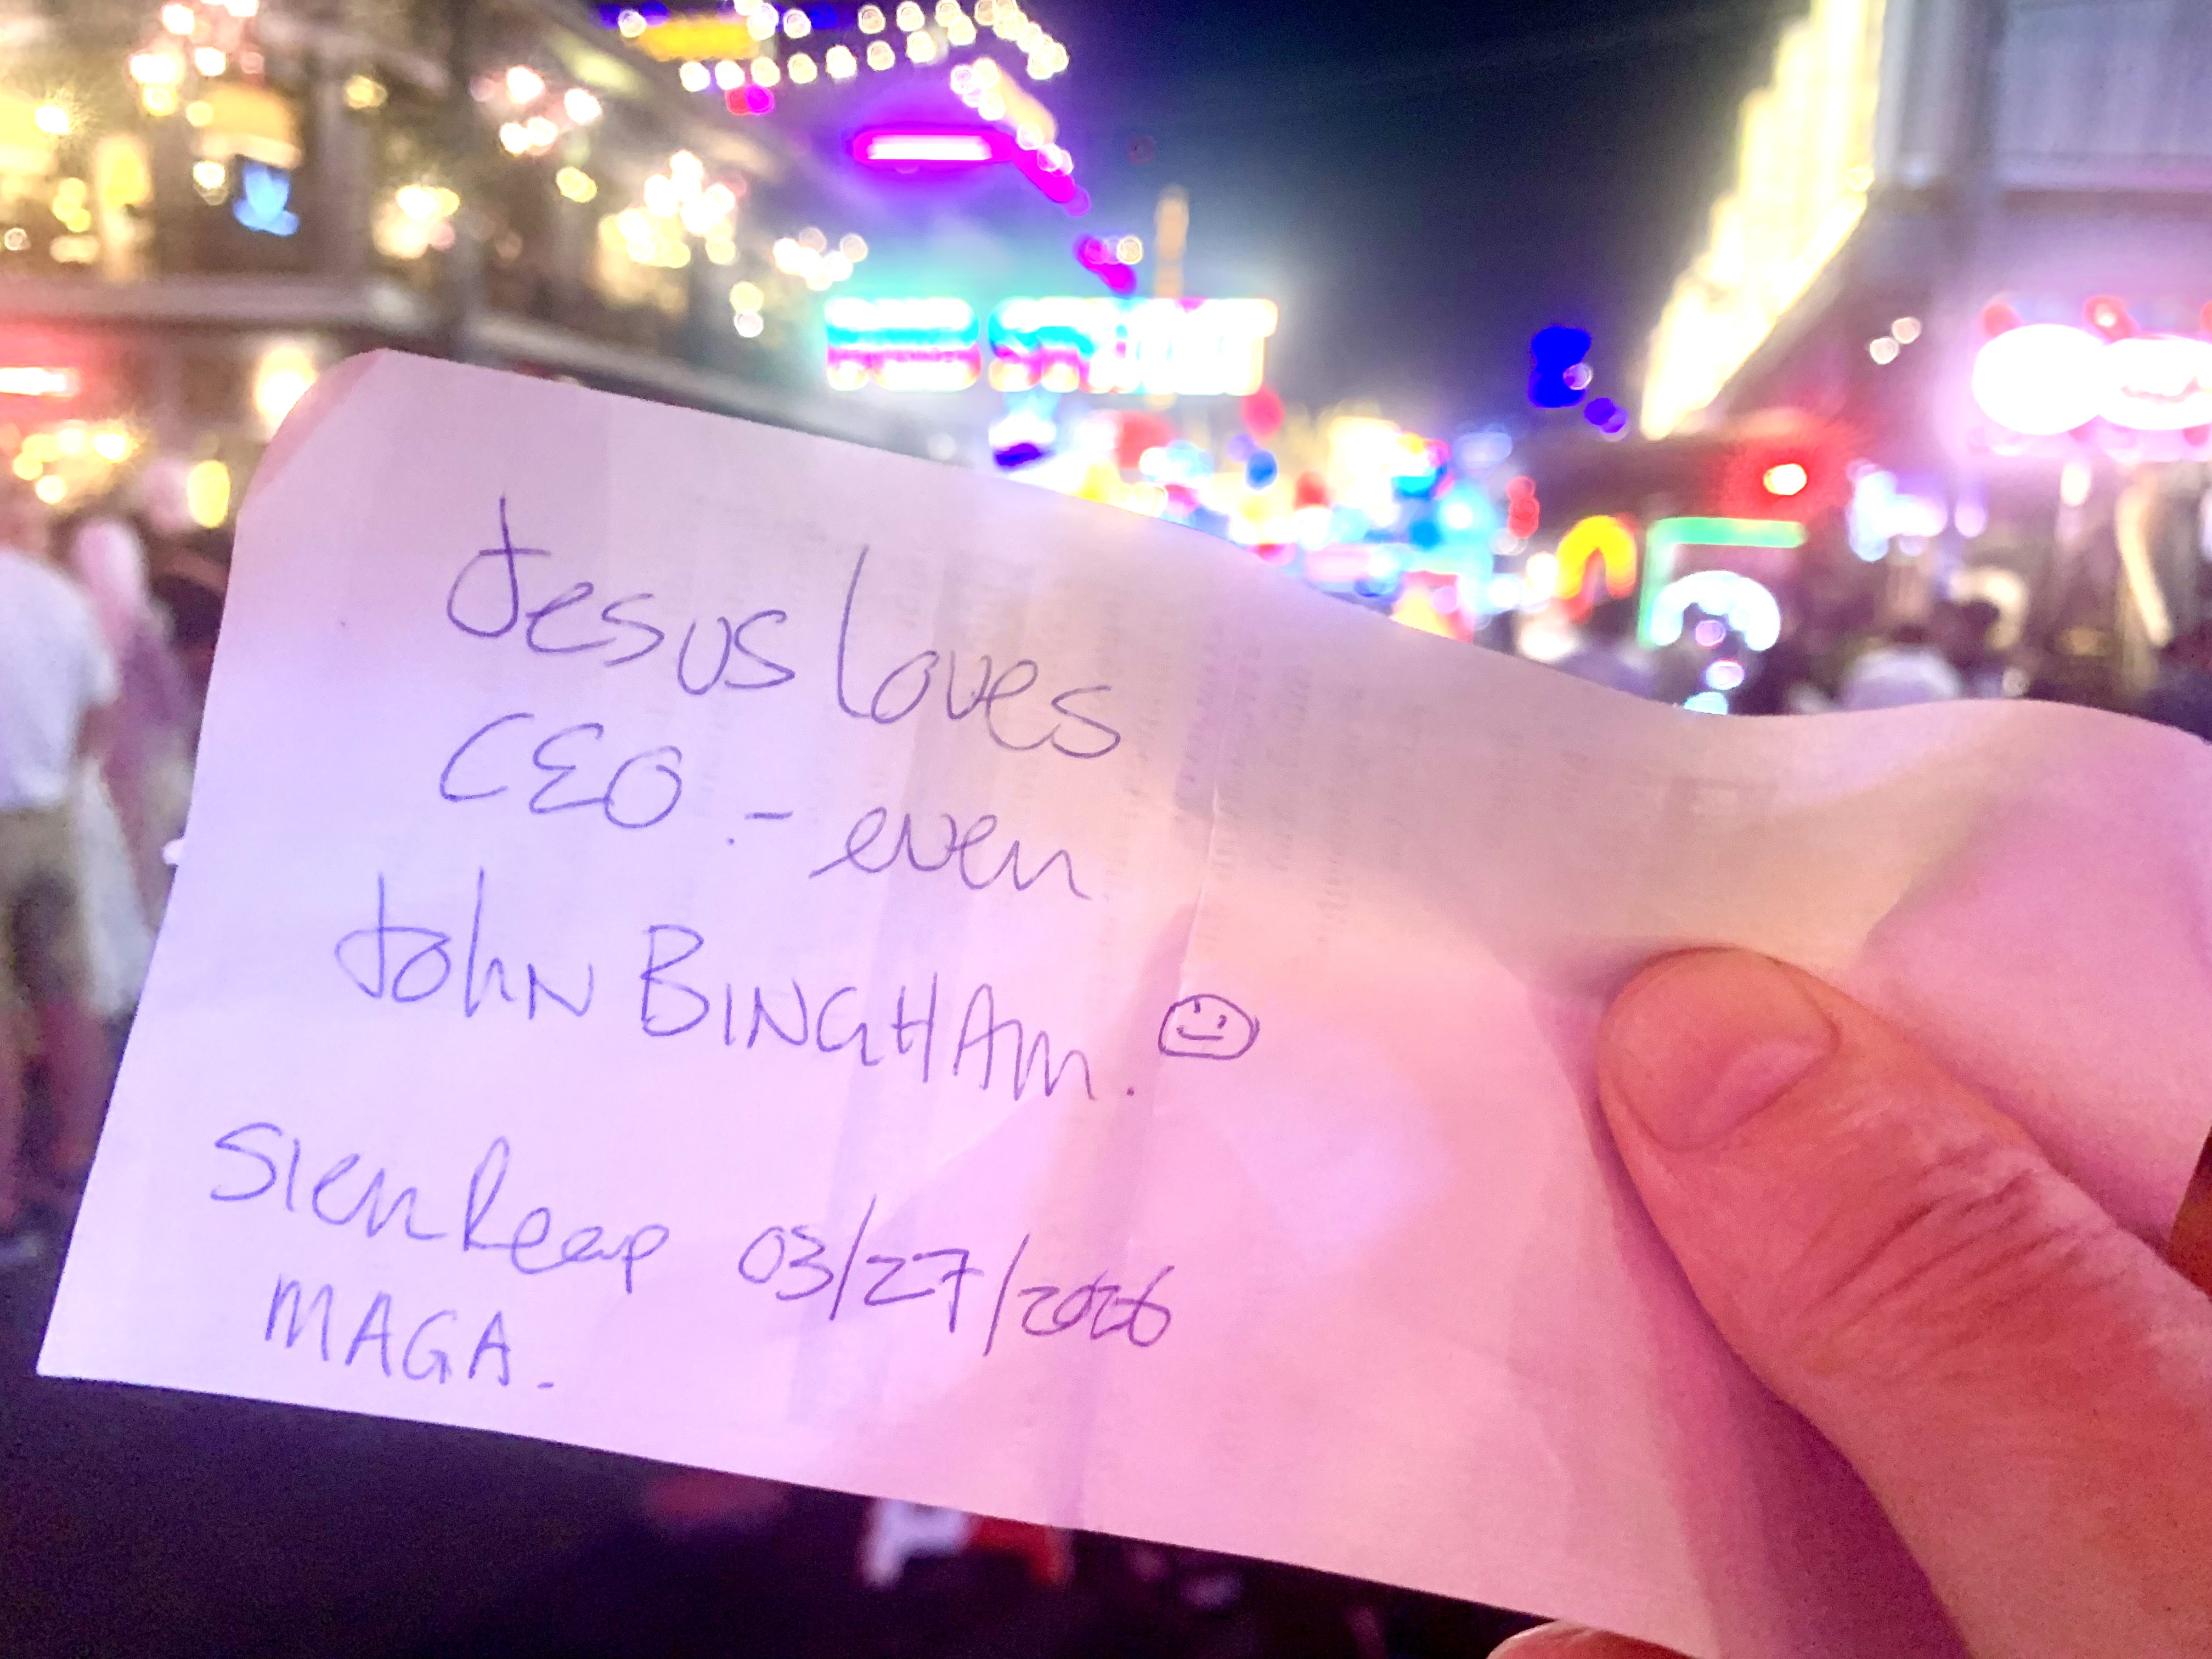 Jesus loves
CEO - even
John BINGHAM. ☺
Siem Reap 03/27/2026
MAGA.